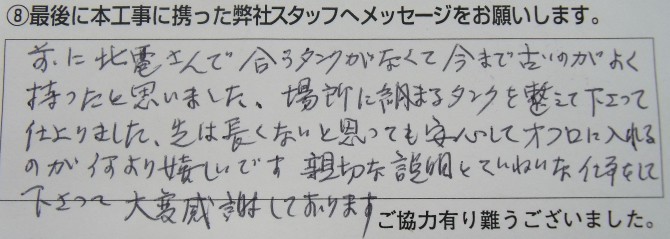 ⑧最後に本工事に携った弊社スタッフへメッセージをお願いします。
前に北電さんで合うタンクがなくて今まで古いのがよく
持ったと思いました、場所に納まるタンクを整えて下さって
仕上りました、先は長くないと思っても安心してオフロに入れる
のが何より嬉しいです 親切な説明とていねいな仕事をして
下さって 大変感謝しております
ご協力有り難うございました。